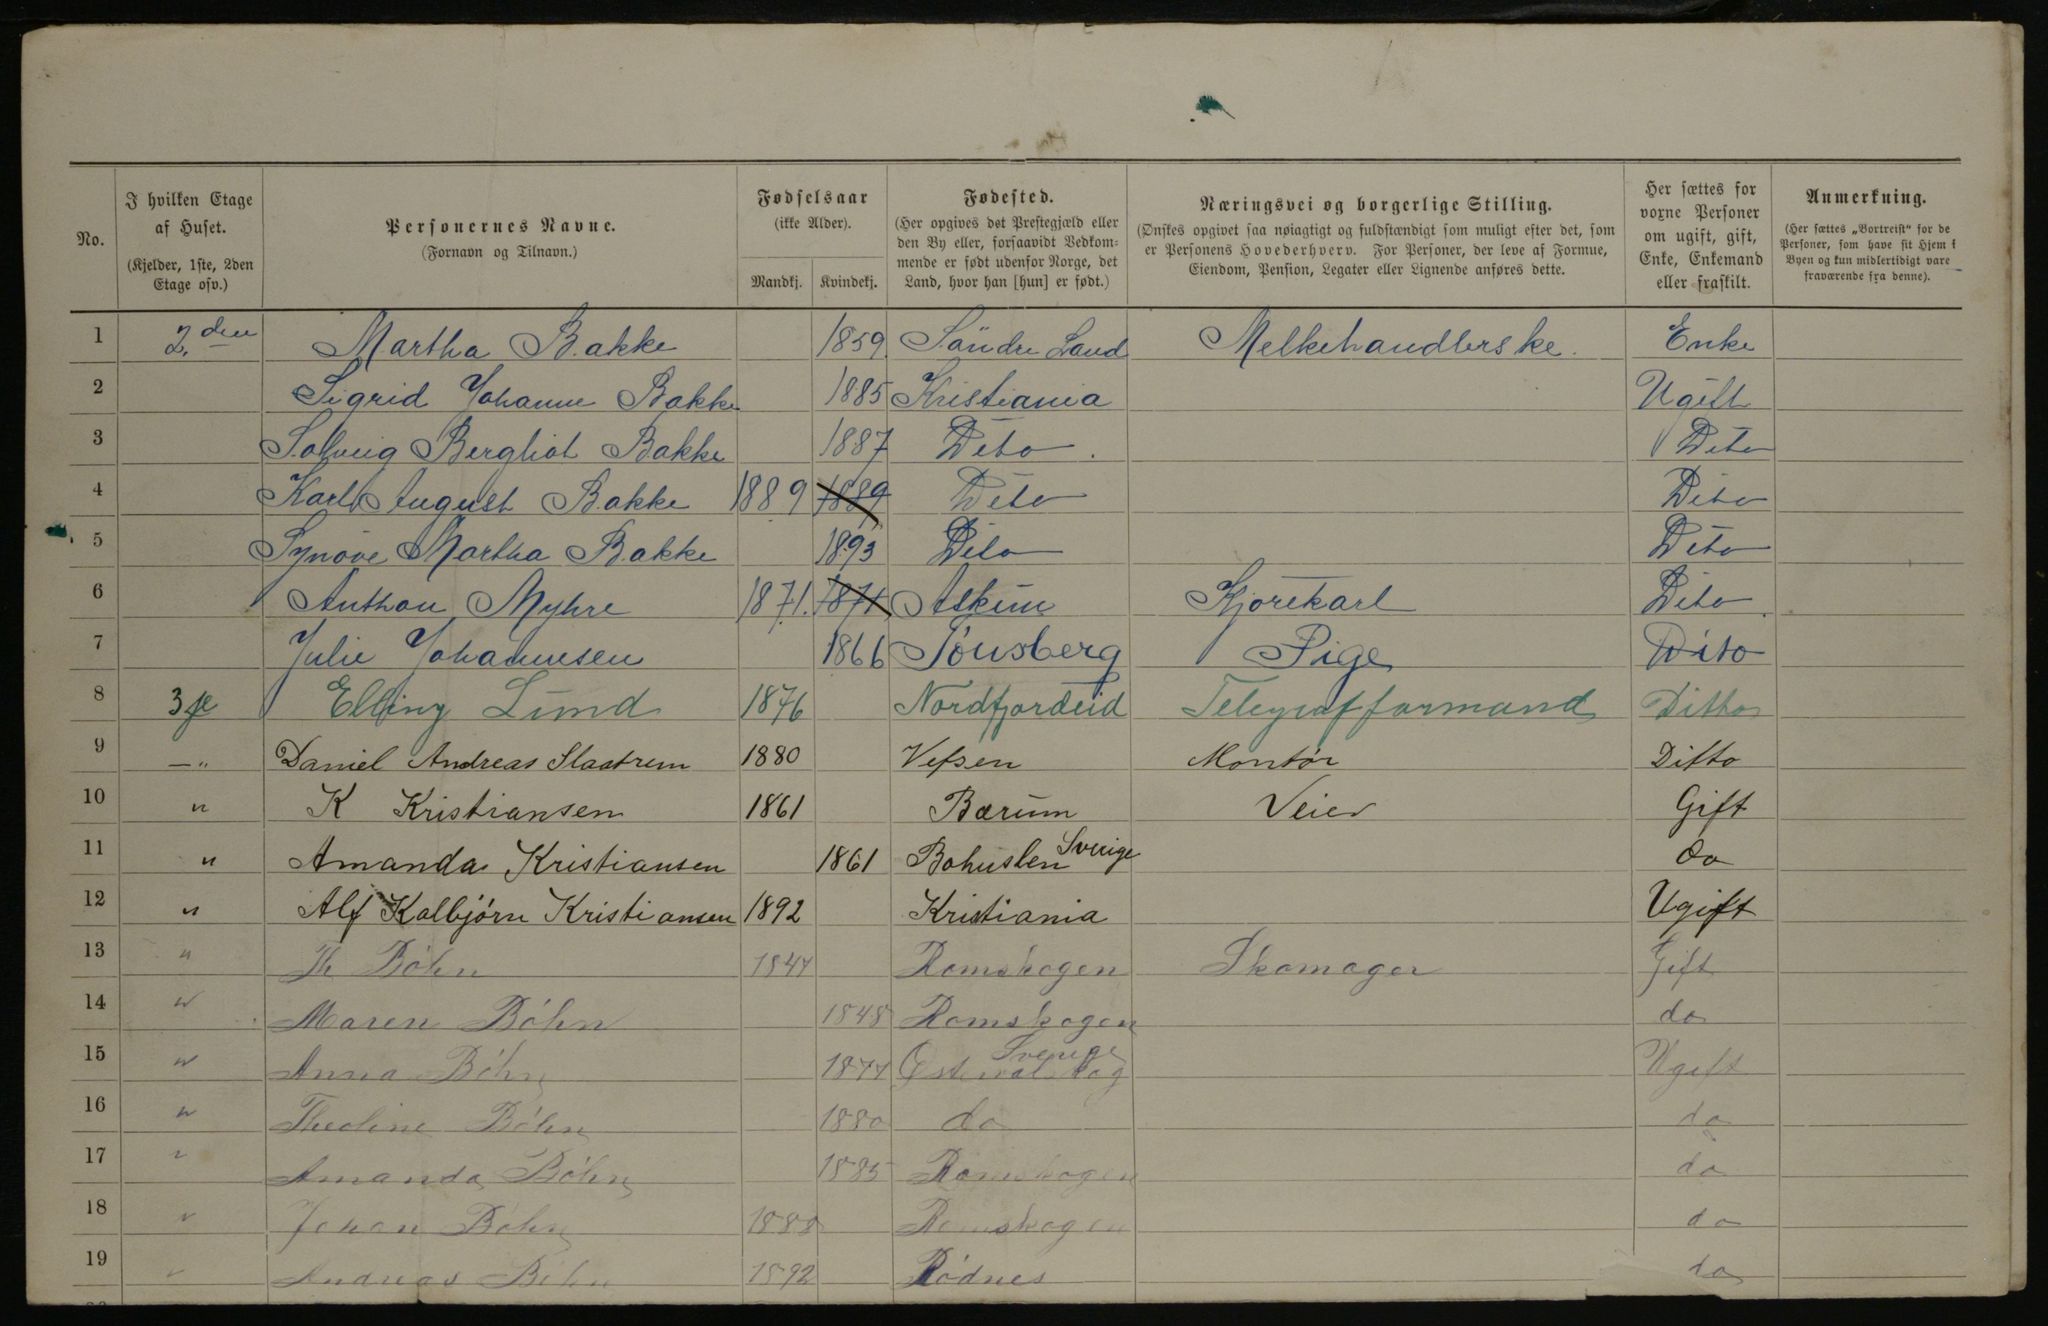 No.
I hvilken Etage af Huset. (Kjelder, 1ste, 2den Etage osv.)
Personernes Navne. (Fornavn og Tilnavn.)
Fødselsaar (ikke Alder). Mandkj. Kvindekj.
Fødested. (Her opgives det Prestegjæld eller den By eller, forsaavidt Vedkommende er født udenfor Norge, det Land, hvor han [hun] er født.)
Næringsvei og borgerlige Stilling. (Ønskes opgivet saa nøiagtigt og fuldstændigt som muligt efter det, som er Personens Hovederhverv. For Personer, der leve af Formue, Eiendom, Pension, Legater eller Lignende anføres dette.
Her sættes for voxne Personer om ugift, gift, Enke, Enkemand eller fraskilt.
Anmerkning. (Her sættes „Bortreist“ for de Personer, som have sit Hjem i Byen og kun midlertidigt vare fraværende fra denne).
1 2.den Martha Bakke 1859 Søndre Land Melkehandlerske. Enke
2 Sigrid Johanne Bakke 1885 Kristiania Ugift
3 Solveig Bergliot Bakke 1887 Dito Dito
4 Karl August Bakke 1889 1889 Dito Dito
5 Synøve Martha Bakke 1893 Dito Dito
6 Anthon Myhre 1871. 1871 Askim Kjørekarl Dito
7 Julie Johannesen 1866 Tønsberg Pige Dito
8 3je Elling Lund 1876 Nordfjordeid Telegrafformand Ditto
9 —„ Daniel Andreas Slaatrem 1880 Vefsen Montør Ditto
10 " K Kristiansen 1861 Bærum Veier Gift
11 " Amanda Kristiansen 1861 Bohuslen Sverige do
12 " Alf Kolbjørn Kristiansen 1892 Kristiania Ugift
13 " Th Bøhn 1847 Romskogen Skomager Gift
14 " Maren Bøhn 1848 Romskogen do
15 " Anna Bøhn 1877 Østervalskog Sverige Ugift
16 " Theoline Bøhn 1880 do do
17 " Amanda Bøhn 1885 Romskogen do
18 " Johan Bøhn 1888 Romskogen do
19 " Andreas Bøhn 1892 Rødnes do